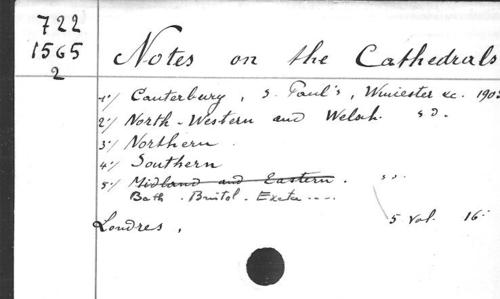 722
1565
2
Notes on the Cathedrals
1°/ Canterbury, S. Paul's, Winiester &c. 190
2°/ North-Western and Welsh. s D.
3°/ Northern.
4°/ Southern
5°/ Midland and Eastern. s.
Bath. Bristol. Exeter ----
Londres, 5 vol. 16°